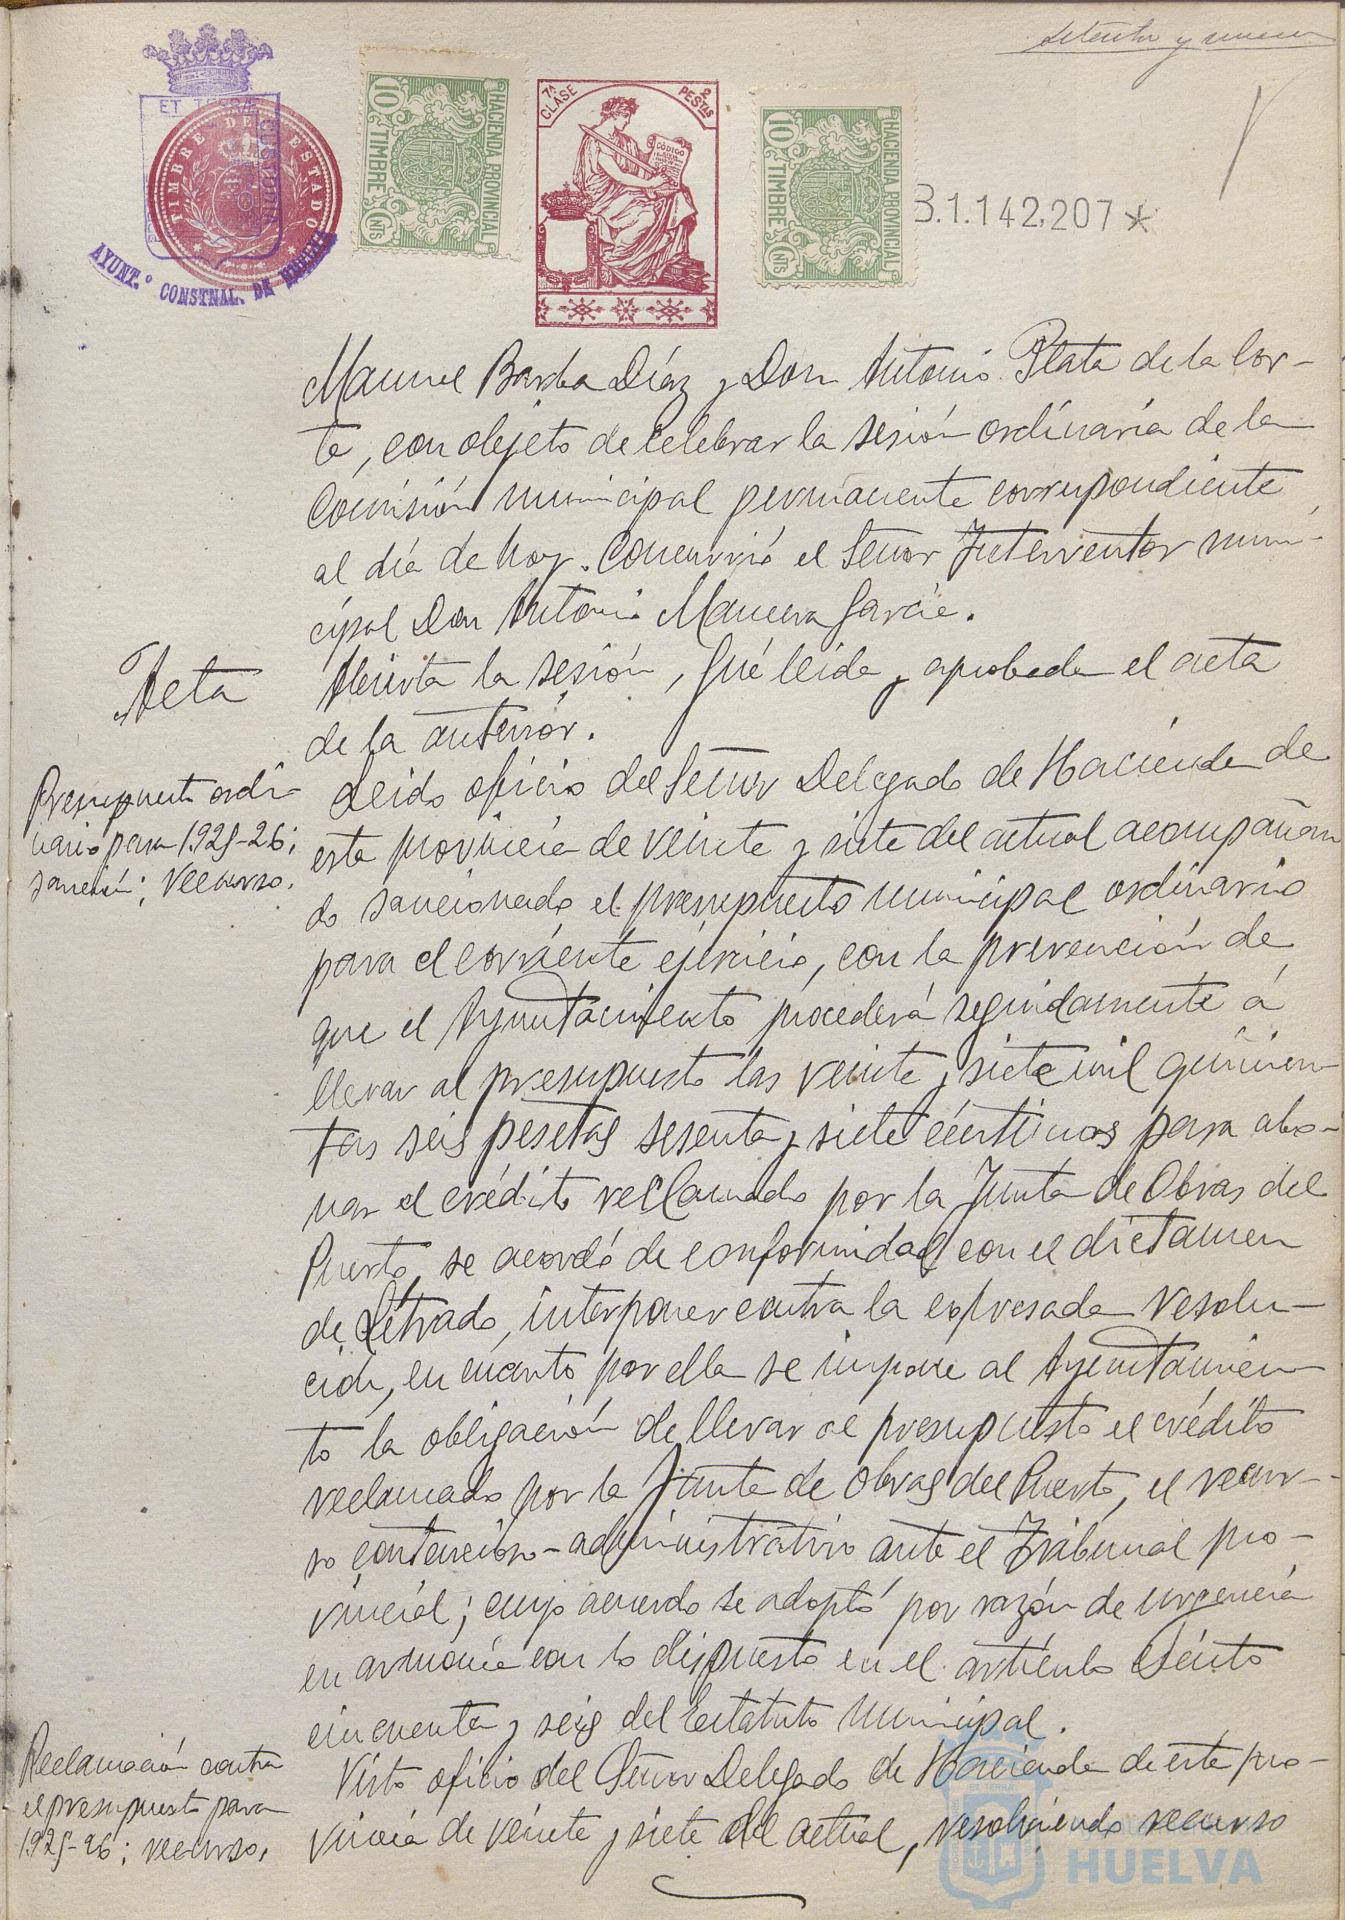 setenta y nueve
ET TERRÆ CUSTODIA
TIMBRE DEL ESTADO
AYUNT.º CONSTNAL. DE HUELVA
10 CNTS
TIMBRE
HACIENDA PROVINCIAL
7ª CLASE
2 PESTAS
CÓDIGO
10 CNTS
TIMBRE
HACIENDA PROVINCIAL
B.1.142.207*
Manuel Barba Díaz y Don Antonio Plata de la Cor-
te, con objeto de celebrar la sesión ordinaria de la
Comisión municipal permanente correspondiente
al día de hoy. Concurrió el Señor Interventor muni-
cipal Don Antonio Mancera García.
Acta
Abierta la sesión, fué leida y aprobada el acta
de la anterior.
Presupuesto ordi-
nario para 1.925-26;
sanción; recurso.
Leido oficio del Señor Delegado de Hacienda de
esta provincia de veinte y siete del actual acompañan
do sancionado el presupuesto municipal ordinario
para el corriente ejercicio, con la prevención de
que el Ayuntamiento procederá seguidamente á
llevar al presupuesto las veinte y siete mil quinien-
tas seis pesetas sesenta y siete céntimos para abo-
nar el crédito reclamado por la Junta de Obras del
Puerto, se acordó de conformidad con el dictamen
de Letrado, interponer contra la expresada resolu-
ción, en cuanto por ella se impone al Ayuntamien-
to la obligación de llevar al presupuesto el crédito
reclamado por la Junta de Obras del Puerto, el recur-
so contencioso-administrativo ante el Tribunal pro-
vincial; cuyo acuerdo se adoptó por razón de urgencia
en armonía con lo dispuesto en el artículo ciento
cincuenta y seis del Estatuto municipal.
Reclamación contra
el presupuesto para
1.925-26; recurso.
Visto oficio del Señor Delegado de Hacienda de esta pro-
vincia de veinte y siete del actual, resolviendo recurso
HUELVA